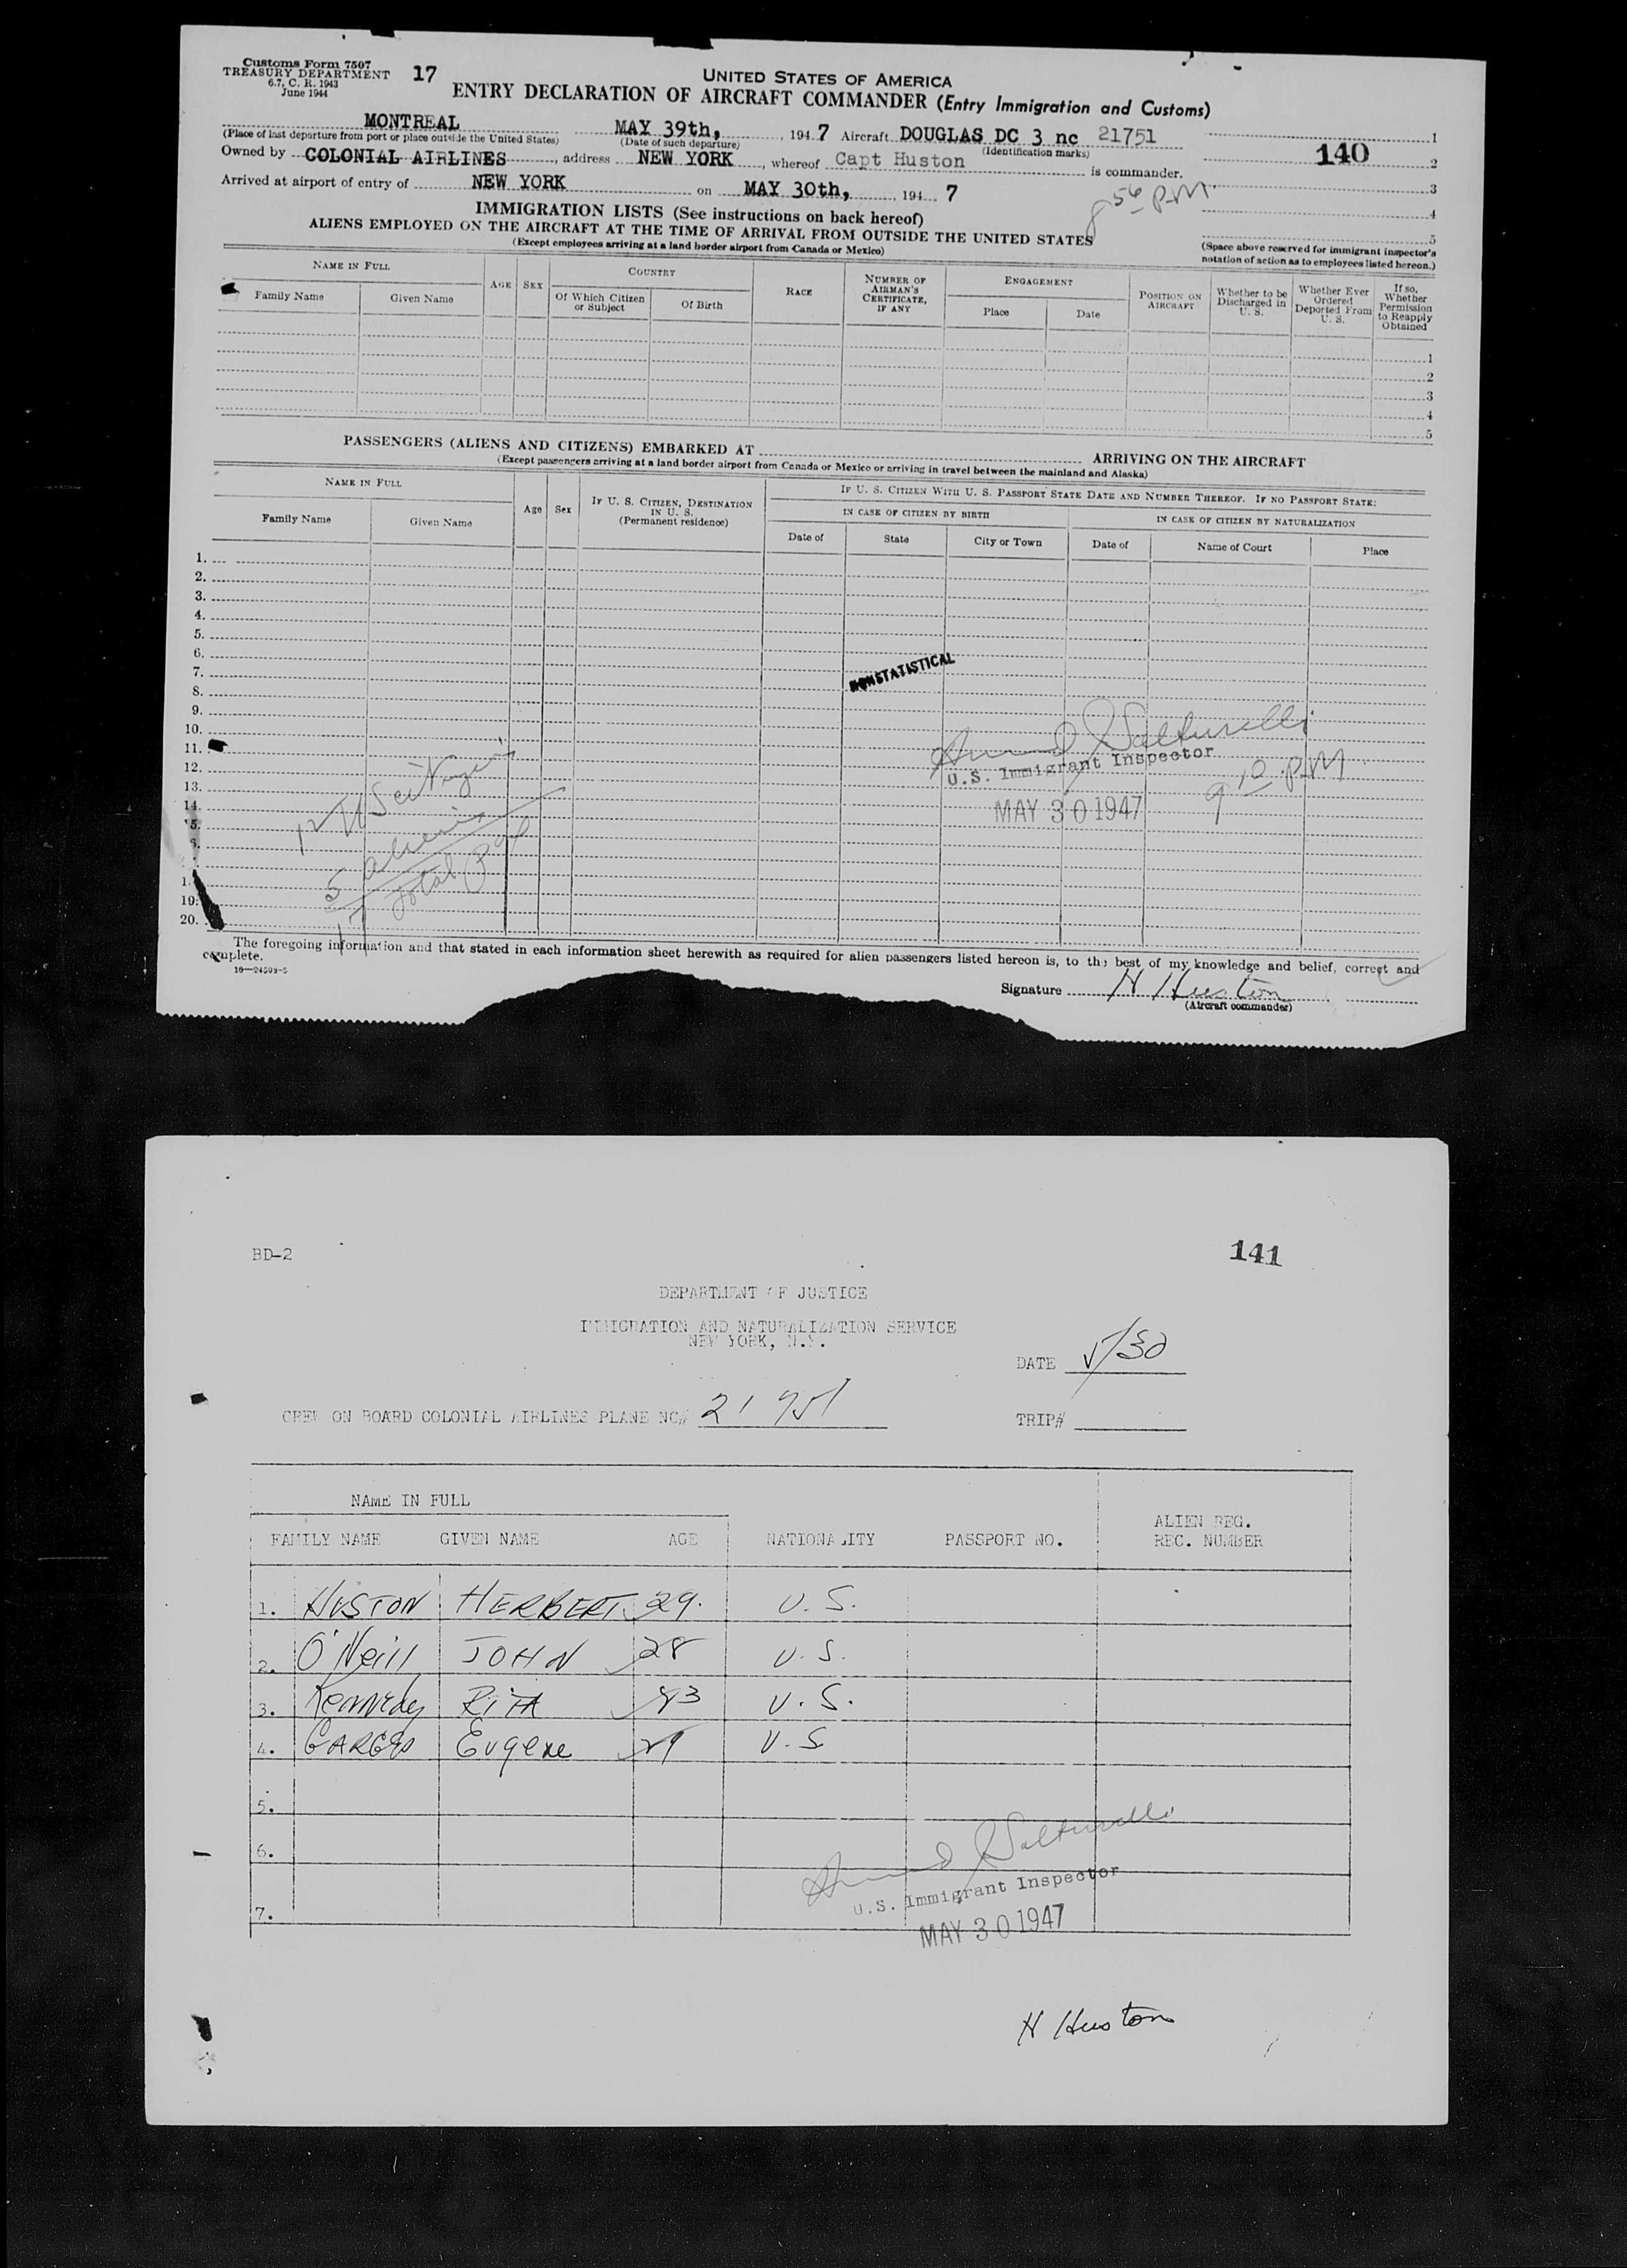 Customs Form 7507
TREASURY DEPARTMENT
6.7, C. R. 1943
June 1944
17
UNITED STATES OF AMERICA
ENTRY DECLARATION OF AIRCRAFT COMMANDER (Entry Immigration and Customs)
MONTREAL MAY 39th, 1947 Aircraft DOUGLAS DC 3 nc 21751
(Place of last departure from port or place outside the United States) (Date of such departure) (Identification marks)
140
Owned by COLONIAL AIRLINES, address NEW YORK, whereof Capt Huston is commander.
Arrived at airport of entry of NEW YORK on MAY 30th, 1947
8 56 P.M.
1
2
3
4
5
(Space above reserved for immigrant inspector's notation of action as to employees listed hereon.)
IMMIGRATION LISTS (See instructions on back hereof)
ALIENS EMPLOYED ON THE AIRCRAFT AT THE TIME OF ARRIVAL FROM OUTSIDE THE UNITED STATES
(Except employees arriving at a land border airport from Canada or Mexico)
NAME IN FULL
Family Name Given Name
AGE SEX
COUNTRY
Of Which Citizen or Subject Of Birth
RACE
NUMBER OF AIRMAN'S CERTIFICATE, IF ANY
ENGAGEMENT
Place Date
POSITION ON AIRCRAFT
Whether to be Discharged in U. S.
Whether Ever Ordered Deported From U. S.
If so, Whether Permission to Reapply Obtained
1
2
3
4
5
PASSENGERS (ALIENS AND CITIZENS) EMBARKED AT ARRIVING ON THE AIRCRAFT
(Except passengers arriving at a land border airport from Canada or Mexico or arriving in travel between the mainland and Alaska)
NAME IN FULL
Family Name Given Name
Age Sex
IF U. S. CITIZEN, DESTINATION IN U. S. (Permanent residence)
IF U. S. CITIZEN WITH U. S. PASSPORT STATE DATE AND NUMBER THEREOF. IF NO PASSPORT STATE:
IN CASE OF CITIZEN BY BIRTH IN CASE OF CITIZEN BY NATURALIZATION
Date of State City or Town Date of Name of Court Place
1.
2.
3.
4.
5.
6.
7.
NONSTATISTICAL
8.
9.
10.
11.
12.
U.S. Immigrant Inspector
9 10 P.M
13.
14.
MAY 30 1947
12 US citizens
5 aliens
17 total pax
19.
20.
The foregoing information and that stated in each information sheet herewith as required for alien passengers listed hereon is, to the best of my knowledge and belief, correct and complete.
16—24593-5
Signature H Huston
(Aircraft commander)
BD-2
141
DEPARTMENT OF JUSTICE
IMMIGRATION AND NATURALIZATION SERVICE
NEW YORK, N.Y.
DATE 5/30
CREW ON BOARD COLONIAL AIRLINES PLANE NC# 21751
TRIP#
NAME IN FULL
FAMILY NAME GIVEN NAME AGE NATIONALITY PASSPORT NO. ALIEN REG. REC. NUMBER
1. HUSTON HERBERT 29. U.S.
2. O'Neill JOHN 28 U.S.
3. Kennedy RITA U.S.
4. Eugene 29 U.S
5.
6.
U.S. Immigrant Inspector
7.
MAY 30 1947
H Huston